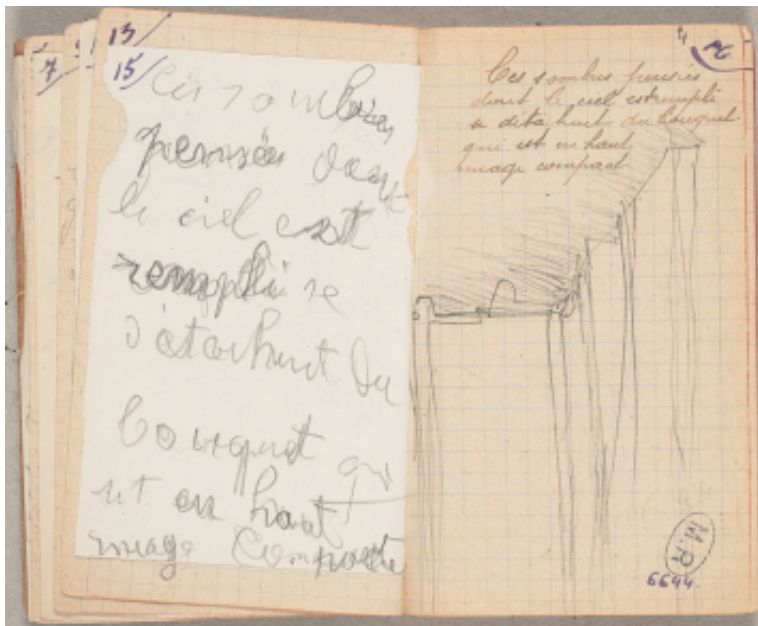 13
15
7
Ces sombres
pensées dont
le ciel est
remplie se
détachent du
bouquet qui
est en haut
nuage compacte
4
2
Ces sombres pensées
dont le ciel est rempli
se détachent du bouquet
qui est en haut
nuage compact
M.R
6644.